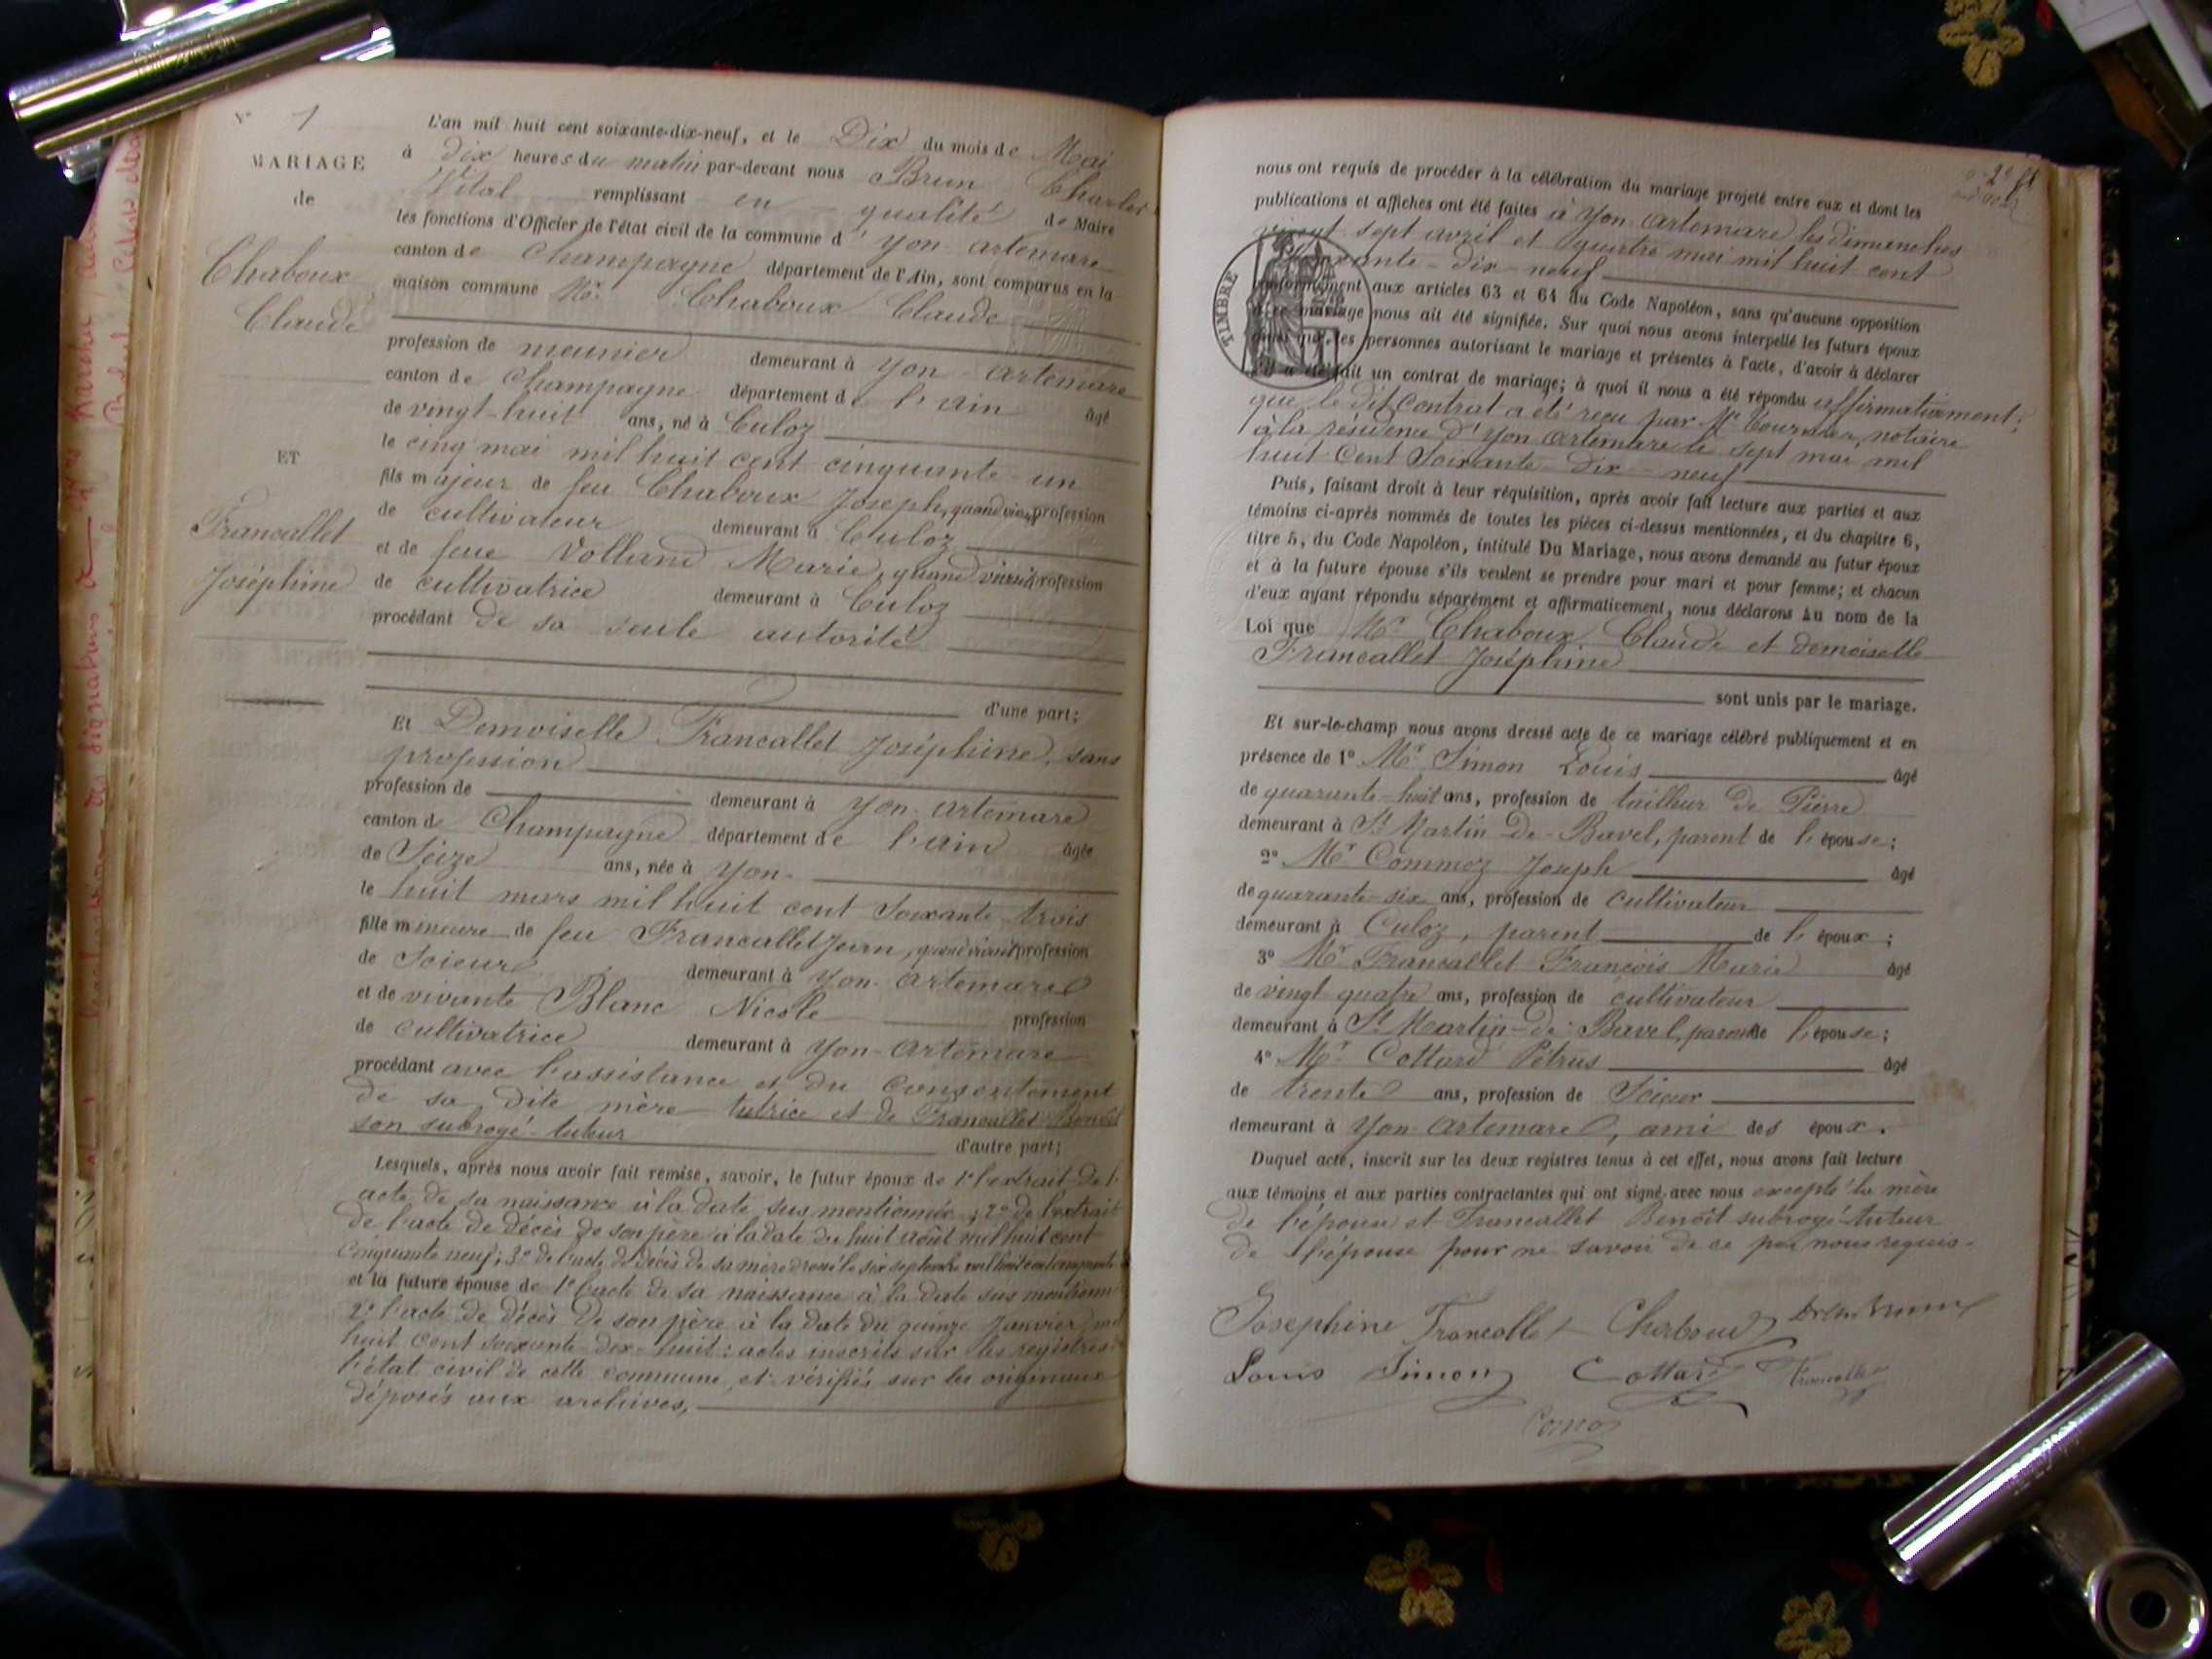 N° 1
MARIAGE
de
Chaboux
Claude
ET
Francallet
Joséphine
L'an mil huit cent soixante-dix-neuf, et le Dix du mois de Mai
à dix heures du matin par-devant nous Brun Charles
Vital remplissant en qualité de Maire
les fonctions d'Officier de l'état civil de la commune d'Yon-artemare
canton de Champagne département de l'Ain, sont comparus en la
maison commune Mr. Chaboux Claude
profession de meunier demeurant à Yon-artemare
canton de Champagne département de l'ain âgé
de vingt-huit ans, né à Culoz
le cinq mai mil huit cent cinquante-un
fils majeur de feu Chaboux Joseph, quand vivait profession
de cultivateur demeurant à Culoz
et de feue Volland Marie, quand vivait profession
de cultivatrice demeurant à Culoz
procédant de sa seule autorité
d'une part;
Et Demoiselle Francallet Joséphine, sans
profession
profession de demeurant à Yon-artemare
canton de Champagne département de l'ain âgée
de Seize ans, née à Yon-
le huit mars mil huit cent soixante-trois
fille mineure de feu Francallet Jean, quand vivait profession
de Scieur demeurant à Yon-artemare
et de vivante Blanc Nicole profession
de cultivatrice demeurant à Yon-artemare
procédant avec l'assistance et du consentement
de sa dite mère tutrice et de Francallet Benoît
son subrogé-tuteur
d'autre part;
Lesquels, après nous avoir fait remise, savoir, le futur époux de 1° l'extrait de l'
acte de sa naissance à la date sus mentionnée; 2° de l'extrait
de l'acte de décès de son père à la date du huit août mil huit cent
cinquante neuf; 3° de l'acte de décès de sa mère dressé le six septembre mil huit cent cinquante
et la future épouse de 1° l'acte de sa naissance à la date sus mentionnée
2° l'acte de décès de son père à la date du quinze Janvier mil
huit cent soixante-dix-huit: actes inscrits sur les registres
l'état civil de cette commune, et vérifiés sur les originaux
déposés aux archives,
nous ont requis de procéder à la célébration du mariage projeté entre eux et dont les
publications et affiches ont été faites à Yon-artemare les dimanches
vingt-sept avril et quatre mai mil huit cent
soixante-dix-neuf
TIMBRE
conformément aux articles 63 et 64 du Code Napoléon, sans qu'aucune opposition
à ce mariage nous ait été signifiée. Sur quoi nous avons interpellé les futurs époux
ainsi que les personnes autorisant le mariage et présentes à l'acte, d'avoir à déclarer
s'il a été fait un contrat de mariage; à quoi il nous a été répondu affirmativement;
que le dit contrat a été reçu par Me Cournier, notaire
à la résidence d'Yon artemare le sept mai mil
huit cent soixante-dix-neuf
Puis, faisant droit à leur réquisition, après avoir fait lecture aux parties et aux
témoins ci-après nommés de toutes les pièces ci-dessus mentionnées, et du chapitre 6,
titre 5, du Code Napoléon, intitulé Du Mariage, nous avons demandé au futur époux
et à la future épouse s'ils veulent se prendre pour mari et pour femme; et chacun
d'eux ayant répondu séparément et affirmativement, nous déclarons au nom de la
Loi que Mr. Chaboux Claude et demoiselle
Francallet Joséphine
sont unis par le mariage.
Et sur-le-champ nous avons dressé acte de ce mariage célébré publiquement et en
présence de 1° Mr. Simon Louis âgé
de quarante-huit ans, profession de tailleur de Pierre
demeurant à St Martin-de-Bavel, parent de l'épouse;
2° Mr. Commoz Joseph âgé
de quarante-six ans, profession de cultivateur
demeurant à Culoz, parent de l'époux;
3° Mr. Francallet François Marie âgé
de vingt quatre ans, profession de cultivateur
demeurant à St Martin-de-Bavel, parent de l'épouse;
4° Mr. Cottard Pétrus âgé
de trente ans, profession de Scieur
demeurant à Yon-Artemare, ami des époux.
Duquel acte, inscrit sur les deux registres tenus à cet effet, nous avons fait lecture
aux témoins et aux parties contractantes qui ont signé avec nous excepté la mère
de l'épouse et Francallet Benoît subrogé-tuteur
de l'épouse pour ne savoir de ce par nous requis.
Josephine Francallet Chaboux
Louis Simon Cottard Francallet